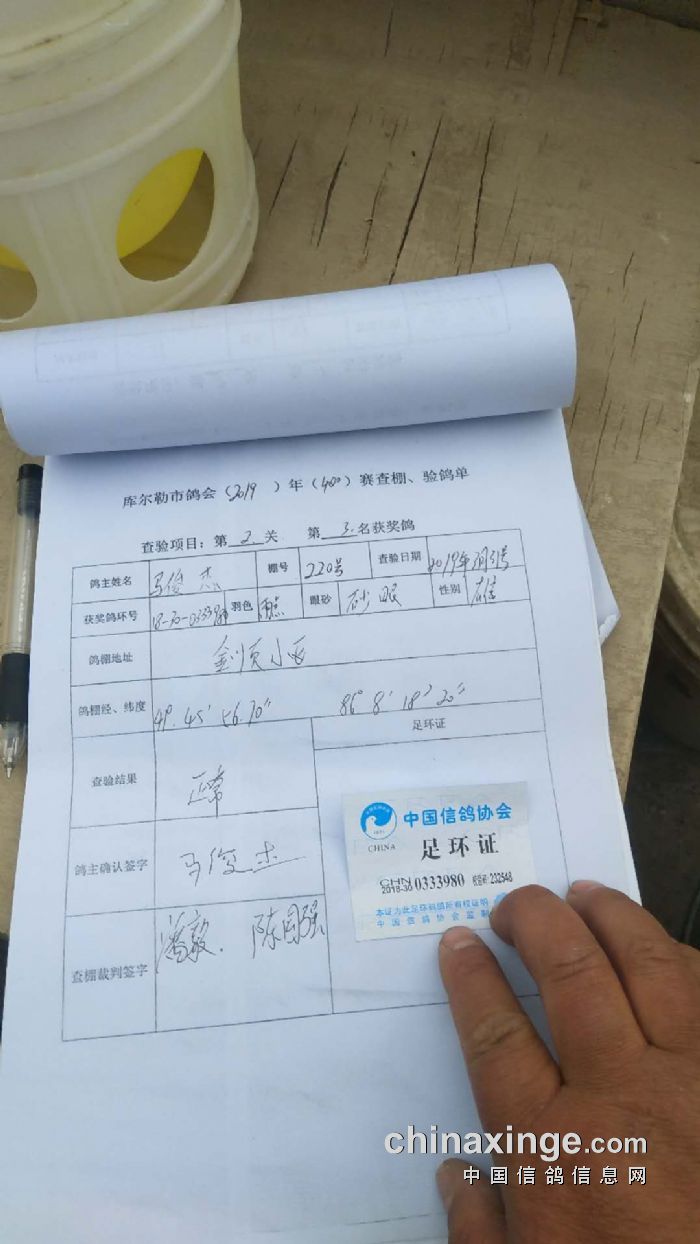 库尔勒市鸽会（2019）年（400）赛查棚、验鸽单
查验项目：第 2 关 第 3 名获奖鸽
鸽主姓名 马俊杰 棚号 220号 查验日期 2019年
获奖鸽环号 18-30-0333980 羽色 眼砂 砂眼 性别 雄
鸽棚地址 小区
鸽棚经、纬度 41° 45' 56.70" 86° 8' 18" 20"
足环证
查验结果 正常
鸽主确认签字 马俊杰
查棚裁判签字 潘毅. 陈国强
中国信鸽协会
CHINA
足环证
CHN
2018-30 0333980 校验码:232548
本证为此足环鸽所有权证明
中国信鸽协会监制
chinaxinge.com
中国信鸽信息网